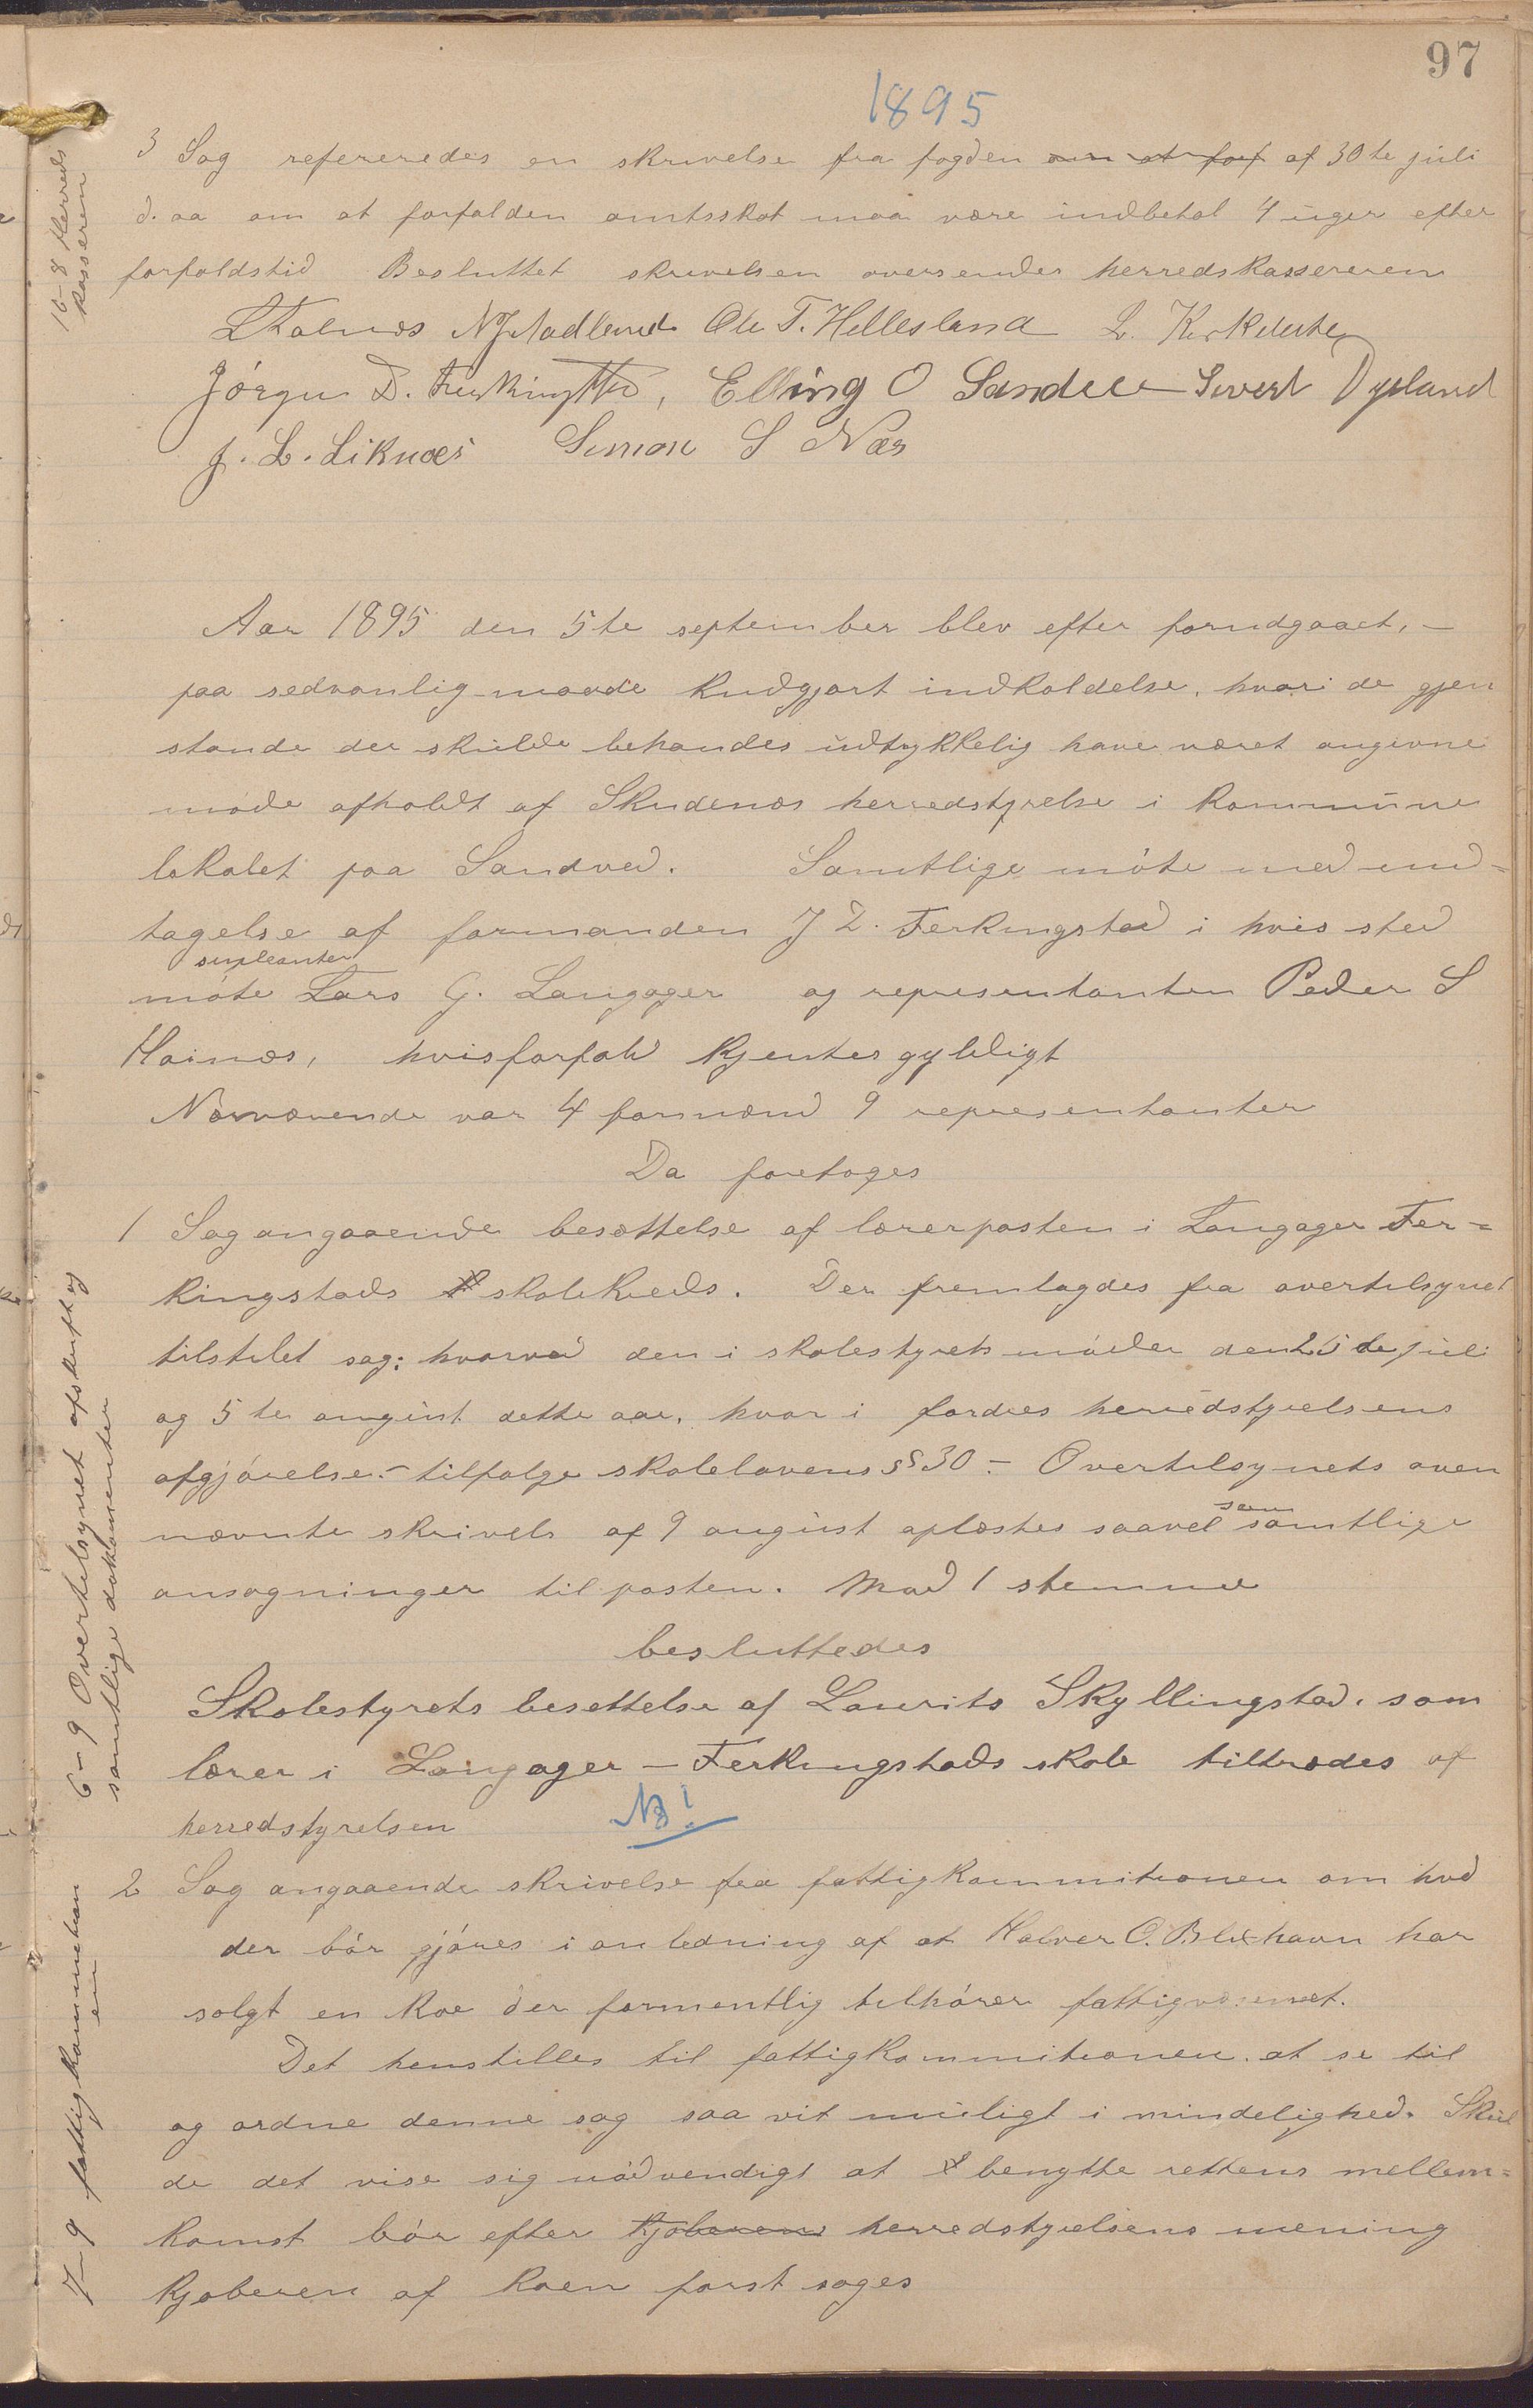 97
1895
3 Sag refereredes en skrivelse fra fogden om at forf af 30te juli
d. aa om at forfalden amtsskat maa være indbetal 4 uger efter
forfaldstid Besluttet skrivelsen oversendes herredskassereren
16-8 Herreds
kasseren
LFalnæs N J Stadland Ole T. Hellesland L. Kirkeleite
Jörgen D. Ferkingstad, Elling O Sandve Sivert Dysland
J. L. Liknæs Simon S Næs
Aar 1895 den 5te september blev efter forudgaaet, –
paa sedvanlig maade kudgjort indkaldelse, hvori de gjen
stande der skulde behandes udtrykkelig have været angivne
møde afholdt af Skudenæs herredstyrelse i kommune
lokalet paa Sandved. Samtlige möte med und-
tagelse af formanden J D. Ferkingstad i hvis sted
supleanten
möte Lars G. Langager og representanten Peder S
Hainæs, hvis forfald kjentes gyldigt
Nærværende var 4 formænd 9 representanter
Da foretoges
1 Sag angaaende besættelse af lærerposten i Langager Fer-
kingstads skolekreds. Der fremlagdes fra overtilsynet
tilstilet sag: hvorved den i skolestyrets möder den 25de juli
og 5te august dette aar, hvor i fordres herredstyrelsens
afgjörelse – tilfølge skolelovens § 30 – Overtilsynets oven
nævnte skrivels af 9 august oplæstes saavel som samtlige
ansøgninger til posten. Mod 1 stemme
besluttedes
Skolestyrets besettelse af Laurits Skyllingstad, som
lærer i Langager – Ferkingstads skole tiltrædes af
herredstyrelsen NB!
6-9 Overtilsynet afskrift og
samtlige dokumenter
2 Sag angaaende skrivelse fra fattigkommitionen om hvd
der bör gjöres i anledning af at Halvor O. Blixhavn har
solgt en Koe der formentlig tilhörer fattigvæsenet.
Det henstilles til fattigkommitionen at se til
og ordne denne sag saa vit muligt i mindelighed. Skul
de det vise sig nödvendigt at benytte rettens mellem-
komst bör efter kjøberen herredstyrelsens mening
kjøberen af koen først søges
7-9 fattigkommition
en